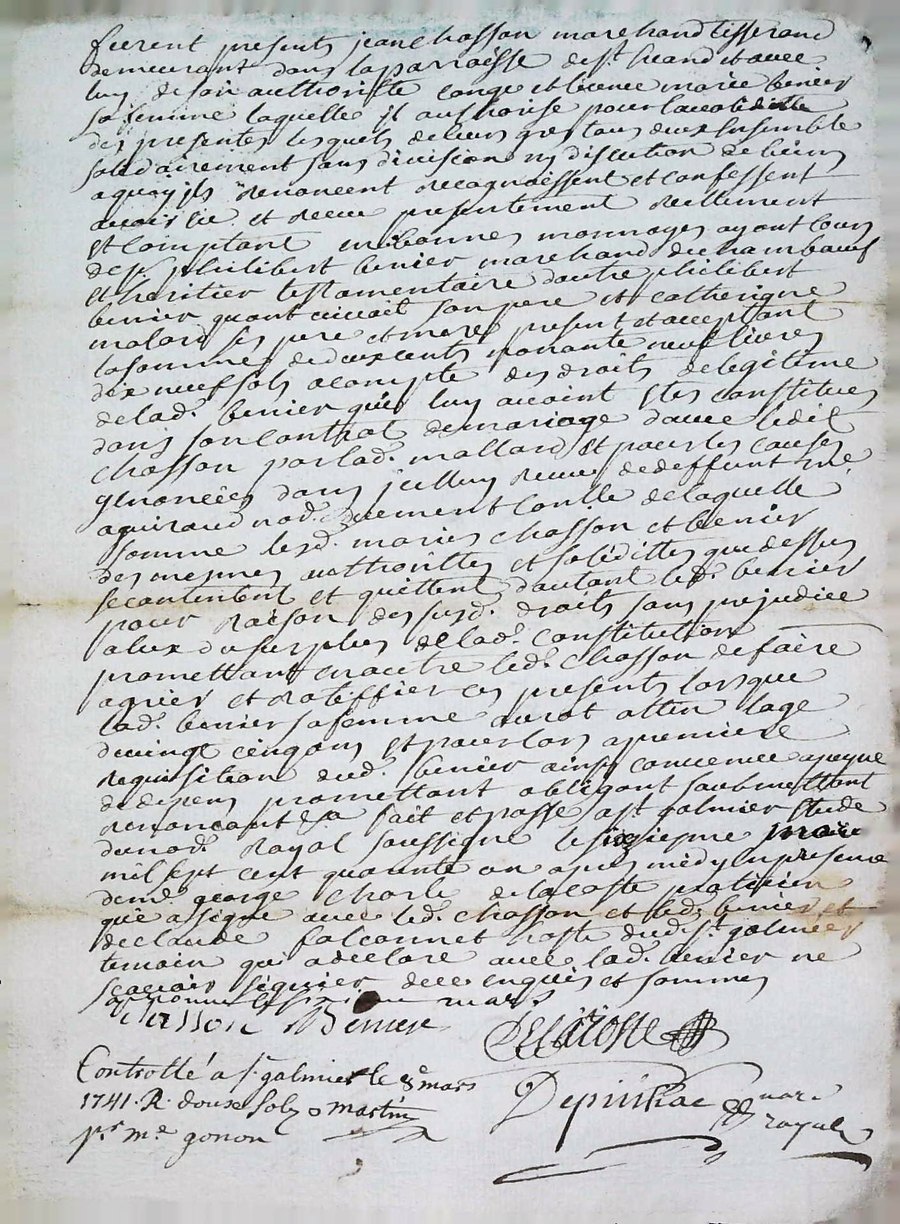 furent presents jean Chasson marchand tisserand
demeurant dans la parroisse de st heand et avec
luy de son authoritte conge et licence marie benier
sa femme laquelle il authorise pour la validitte
des presentes lesquels de leurs gres tous deux ensemble
solidairement sans division ny discution de biens
a quoy ils renoncent recognoissent et confessent
avoir eu et receu presentement reellement
et comptant en bonnes monnoyes ayant cours
de sr philibert benier marchand de chambœuf
et heritier testamentaire dautre philibert
benier quant vivoit son pere et catherigne
malard ses pere et mere present et acceptant
la somme de deux cents nonante neuf livres
dix neuf sols acompte des droits de legitime
de lad. benier qui luy avoint estes constitues
dans son contrat de mariage d'avec ledit
Chasson par lad. mallard et pour les causes
enoncées dans jcelluy receu de deffunt me
aguiraud nod. duement conlle de laquelle
somme lesd. maries chasson et benier
des mesmes authorittes et solidittes que dessus
se contentent et quittent d'autant led. benier
pour raison des susd. droits sans prejudice
a eux du surplus de lad. constitution
promettant en outre led. chasson de faire
agreer et ratiffier ces presentes lorsque
lad. benier sa femme aurat attein lage
de vingt cinq ans et pour lors a premiere
requisition dud. benier ainsy convenu a peyne
de depens promettant obligeant soubmettant
renoncant &a fait et passe a st galmier estude
du nod. royal soussigne le sizieyme mars
mil sept cent quarante un apres midy en presence
de me george charle delacoste praticien
qui a signe avec led. chasson et led. benier et
de claude falconnet hoste dud. st galmier
temoin qui a declare avec lad. benier ne
scavoir signer de ce enquis et sommes
mars
Chasson Benier Delacoste
Controllé a st galmier le 8e mars
1741. R. douze sols martin
pr me gonon
Depinhac nore
royal